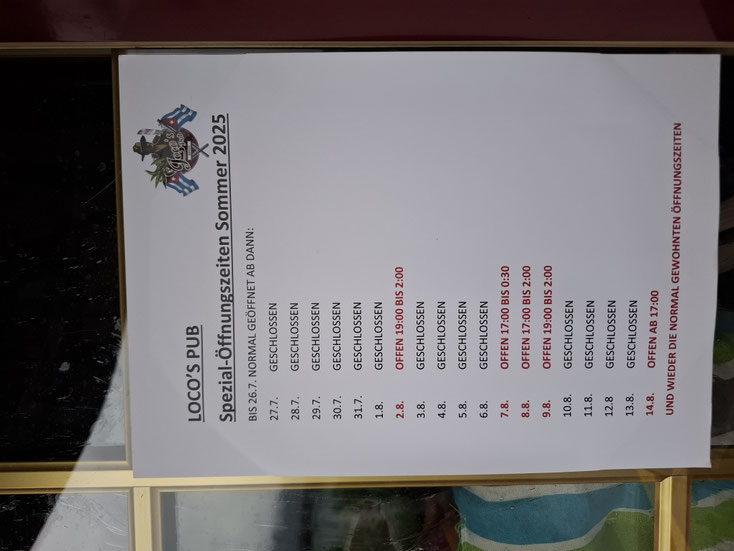 Loco's
LOCO'S PUB
Spezial-Öffnungszeiten Sommer 2025
BIS 26.7. NORMAL GEÖFFNET AB DANN:
27.7. GESCHLOSSEN
28.7. GESCHLOSSEN
29.7. GESCHLOSSEN
30.7. GESCHLOSSEN
31.7. GESCHLOSSEN
1.8. GESCHLOSSEN
2.8. OFFEN 19:00 BIS 2:00
3.8. GESCHLOSSEN
4.8. GESCHLOSSEN
5.8. GESCHLOSSEN
6.8. GESCHLOSSEN
7.8. OFFEN 17:00 BIS 0:30
8.8. OFFEN 17:00 BIS 2:00
9.8. OFFEN 19:00 BIS 2:00
10.8. GESCHLOSSEN
11.8. GESCHLOSSEN
12.8 GESCHLOSSEN
13.8. GESCHLOSSEN
14.8. OFFEN AB 17:00
UND WIEDER DIE NORMAL GEWOHNTEN ÖFFNUNGSZEITEN